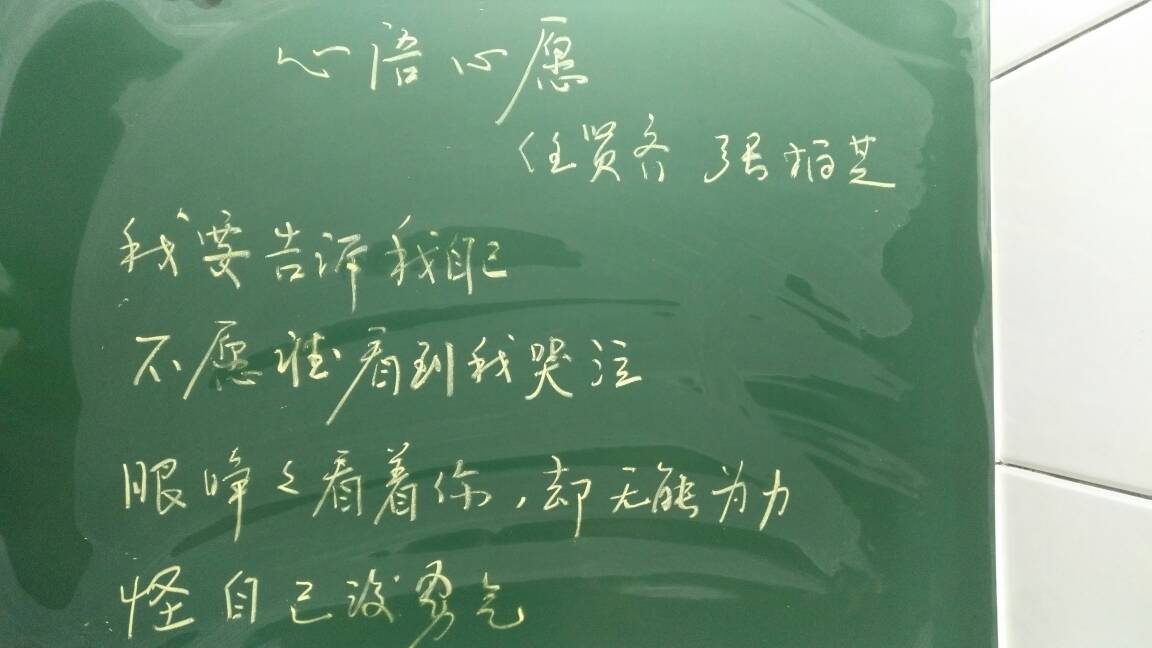 心语心愿
任贤齐 张柏芝
我要告诉我自己
不愿谁看到我哭泣
眼睁々看着你，却无能为力
怪自己没勇气